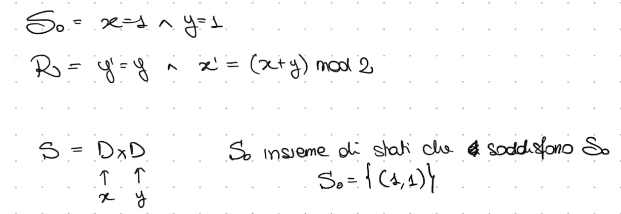 S₀ = x=1 ∧ y=1
R = y'=y ∧ x' = (x+y) mod 2
S = D×D S₀ insieme di stati che soddisfano S₀
↑ ↑ S₀ = {(1,1)}
x y